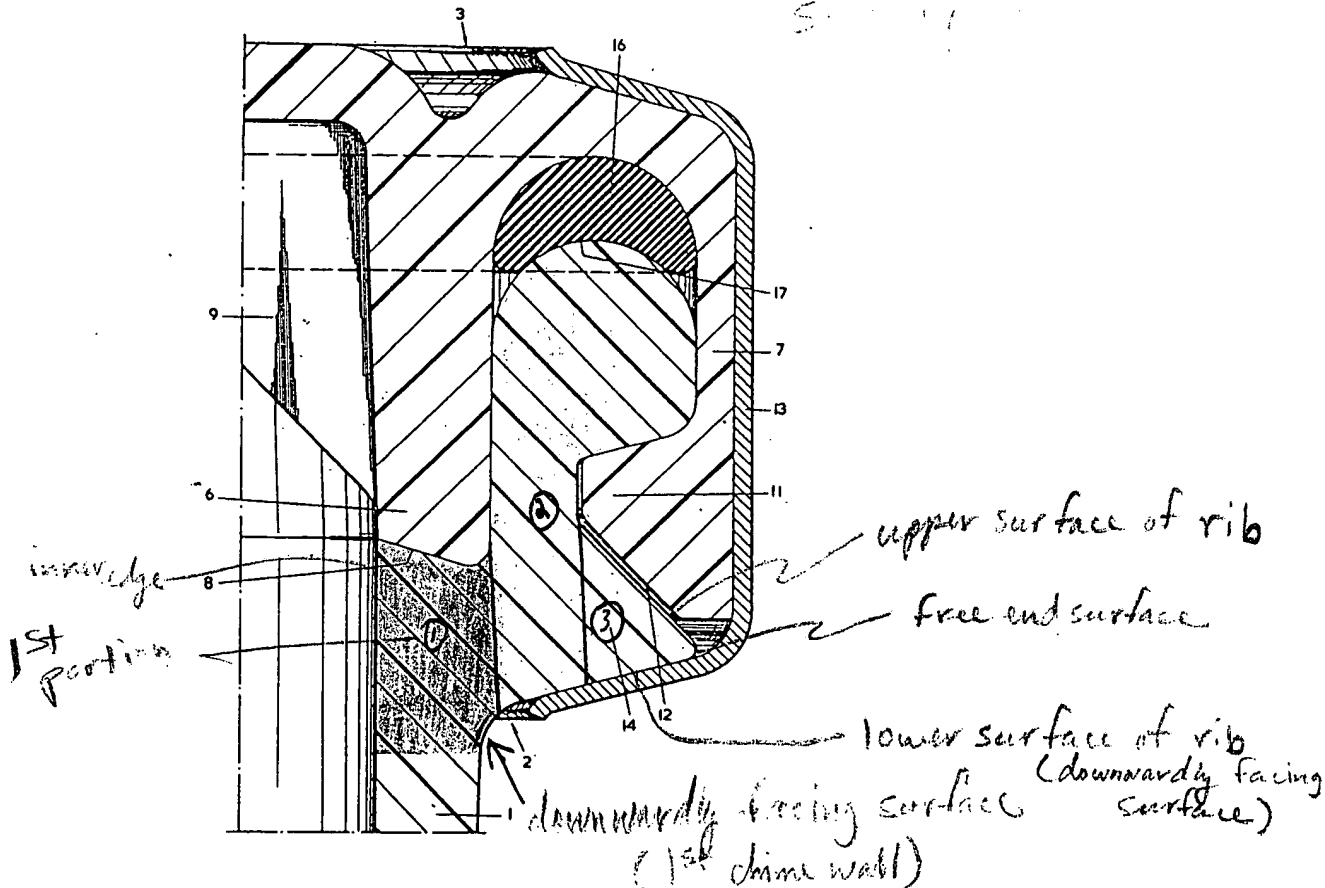 3
16
17
9
7
13
6
11
②
upper surface of rib
inner edge
8
③
free end surface
①
1st
portion
12
14
lower surface of rib
(downwardly facing
surface)
2
1
downwardly facing surface
(1st chime wall)